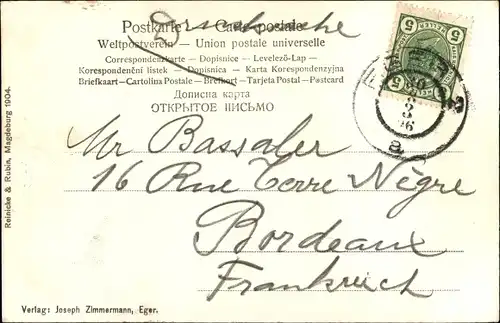 Postkarte — Carte postale
Drucksache
Weltpostverein — Union postale universelle
Correspondenzkarte — Dopisnice — Levelező-Lap —
Korespondenční listek — Dopisnica — Karta Korespondencyjna
Briefkaart — Cartolina Postale — Brefkort — Tarjeta Postal — Postcard
Дописна карта
ОТКРЫТОЕ ПИСЬМО
5 5
5 5
3
a
Mr Bassaler
16 Rue Terre Nègre
Bordeaux
Frankreich
Reinicke & Rubin, Magdeburg 1904.
Verlag: Joseph Zimmermann, Eger.